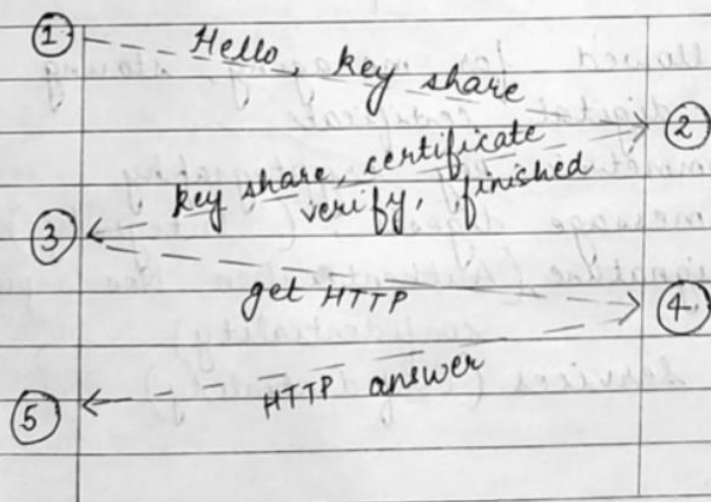 1
Hello, key share
2
key share, certificate
verify, finished
3
get HTTP
4
HTTP answer
5